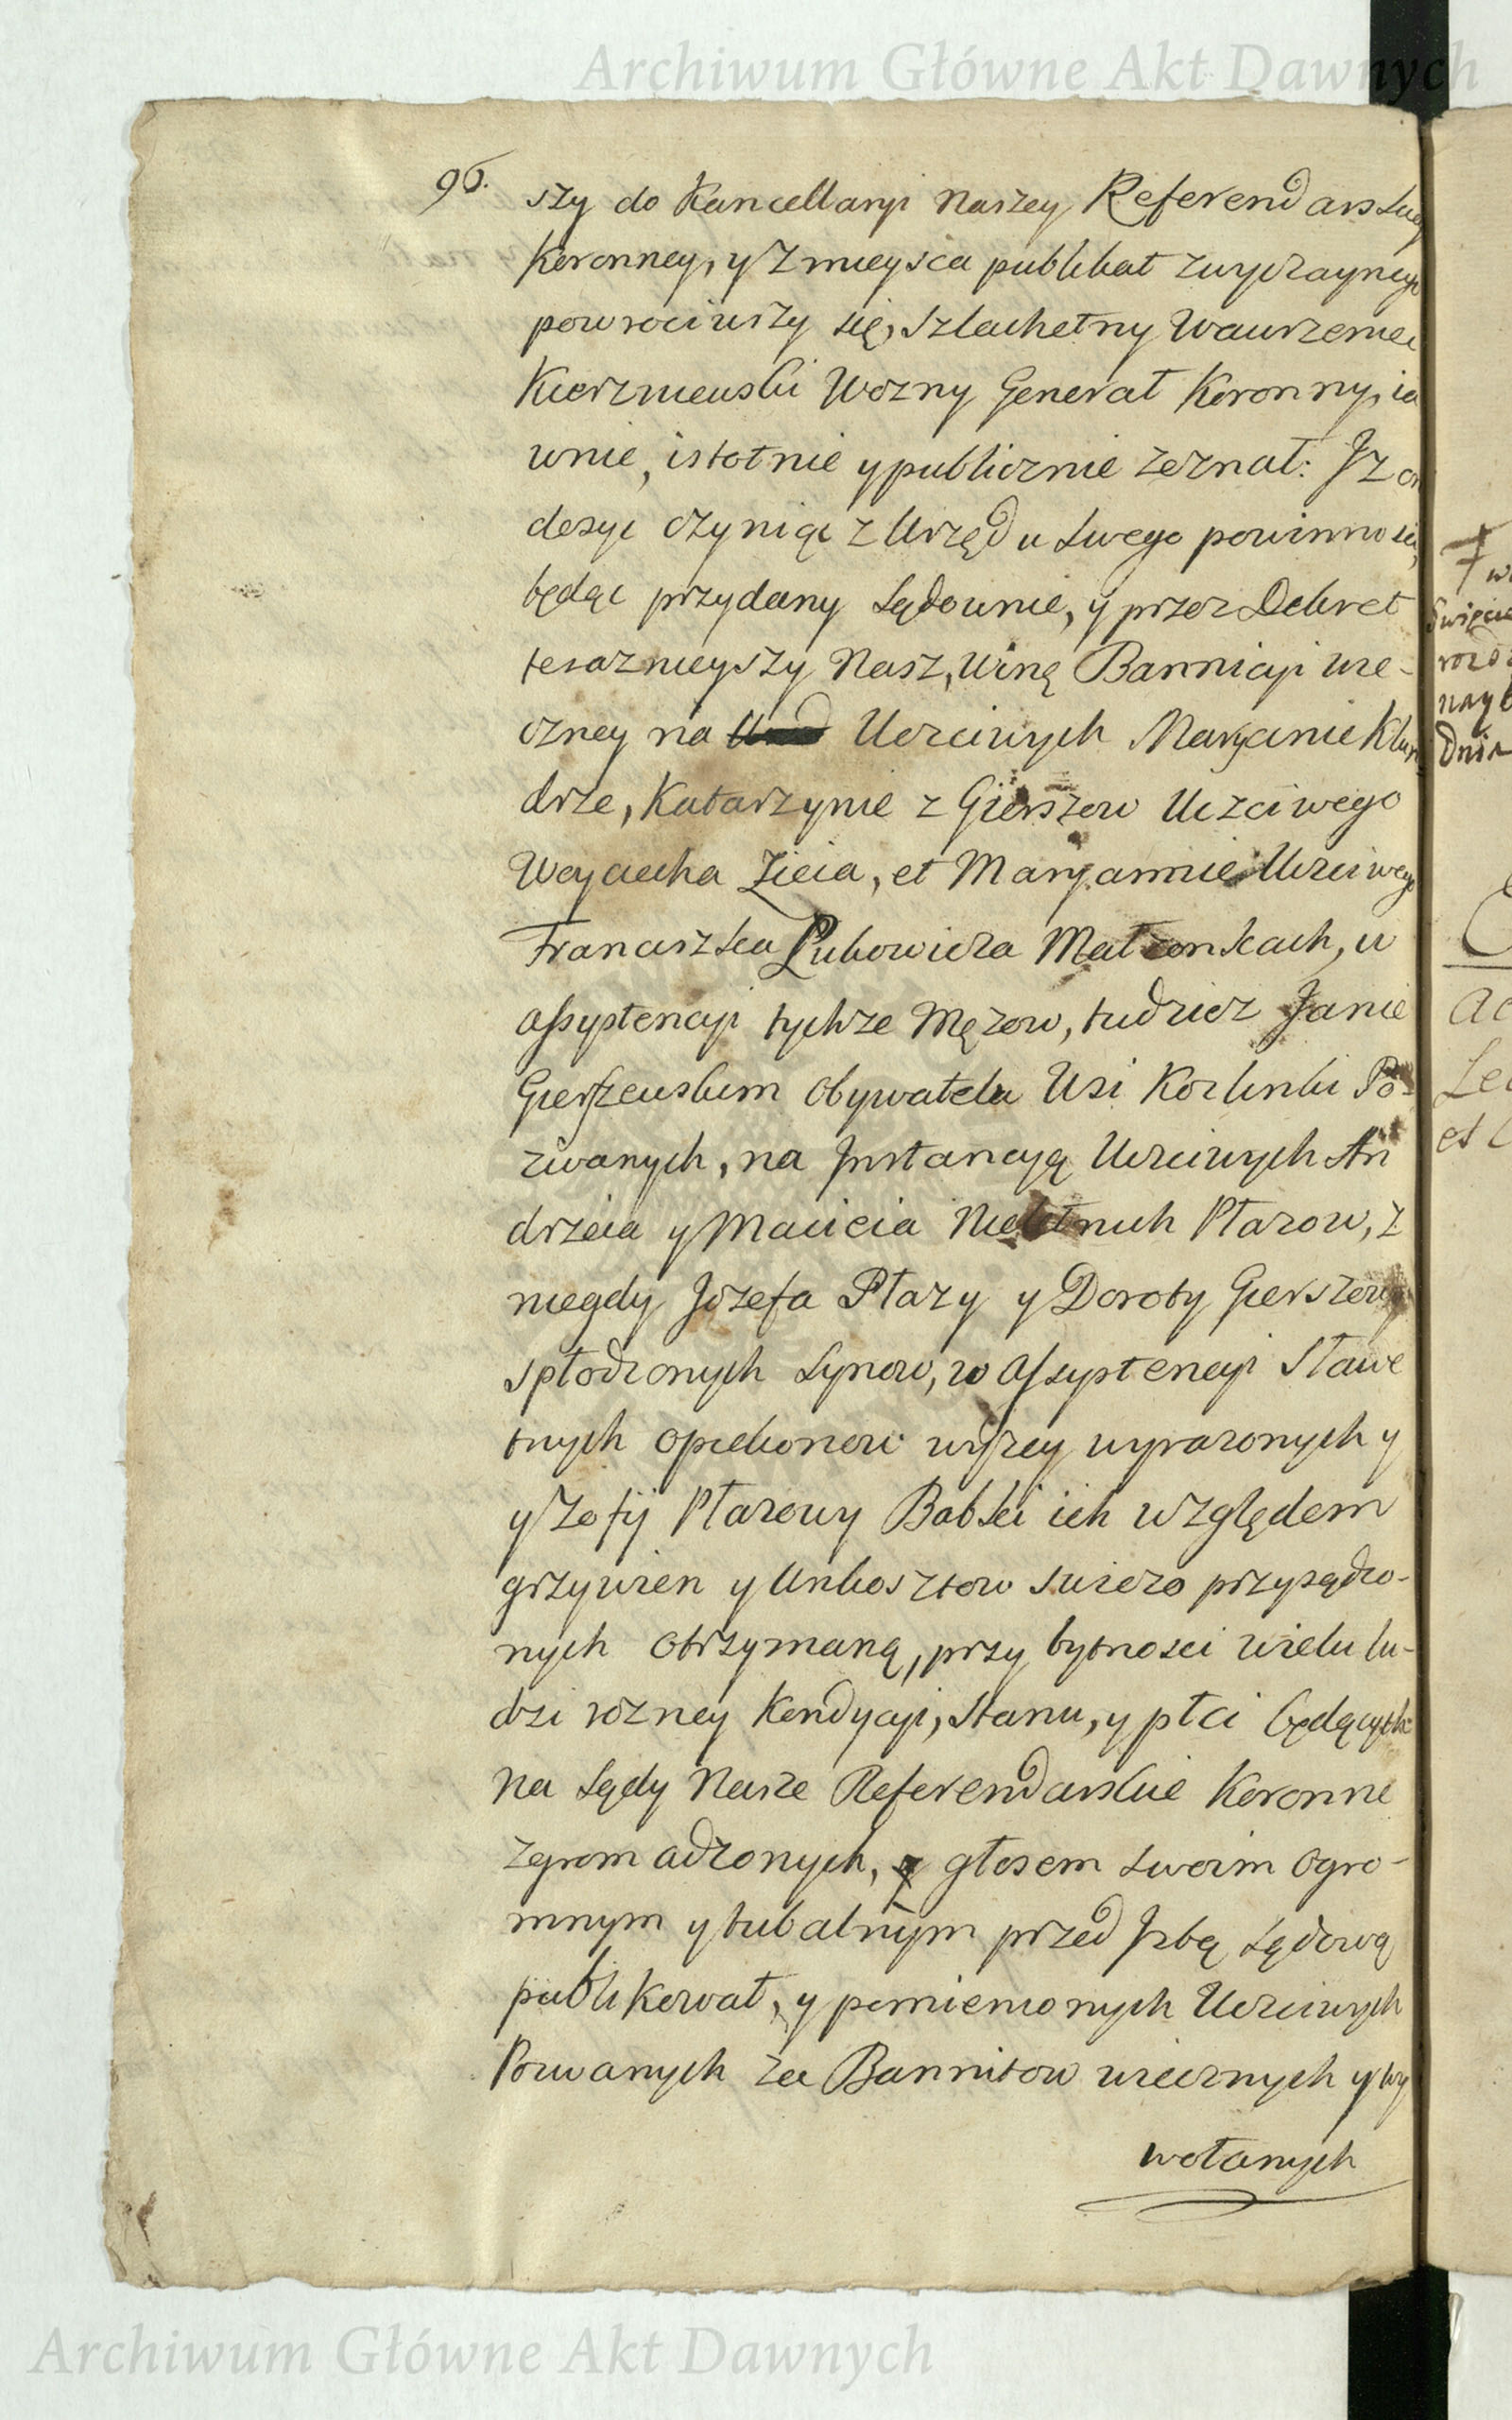 Archiwum Główne Akt Dawnych
96.
szy do Kancellaryi Naszey Referendarskiey
Koronney, y z mieysca publikat zwyczaynego
powrociwszy się, Szlachetny Wawrzeniec
Kierzniewski Wozny Generał Koronny, ia
wnie, istotnie y publicznie zeznał: Iz on
dosyc czyniąc z Urzędu swego powinności,
będąc przydany sądownie, y przez Dekret
teraznieyszy Nasz, winę Bannicyi wie-
czney na Uczciwych Maryannie Klun
drze, Katarzynie z Gierszow Uczciwego
Woyciecha Zięcia, et Maryannie Uczciwego
Franciszka Lubowicza Małzonkach, w
assystencyi tychze Męzow, tudziez Janie
Gierszewskim Obywatelu Wsi Kozlinki Po-
zwanych, na Instancyą Uczciwych An
drzeia y Macieia Nieletnich Płazow, z
niegdy Jozefa Płazy y Doroty Gierszow
spłodzonych Synow, w assystencyi Sławe
tnych opiekunow wyzey wyrazonych y
y Zofij Płazowy Babki ich względem
grzywien y Unkosztow swiezo przysądzo-
nych otrzymaną, przy bytnosci wielu lu-
dzi rozney Kondycyi, Stanu, y płci będących
na Sądy Nasze Referendarskie Koronne
zgromadzonych, głosem swoim ogro-
mnym y tubalnym przed Izbą Sądową
publikował, y pomienionych Uczciwych
Pozwanych za Bannitow wiecznych y wy
wołanych
w
Swięcie
rozd
nayb
Dnia
Ac
Le
et
Archiwum Główne Akt Dawnych